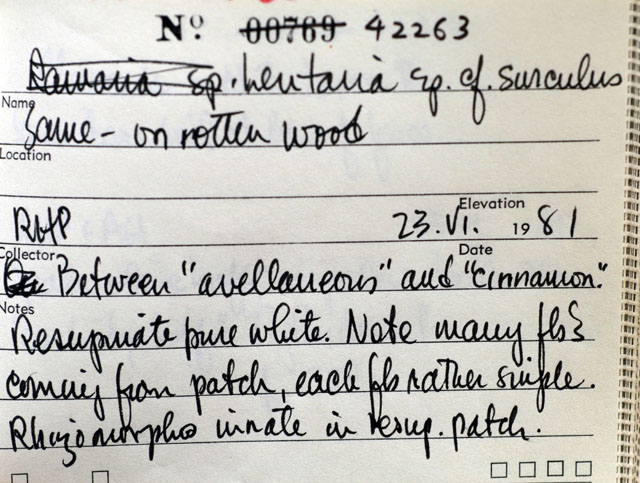 Nº 00789 42263
Ramaria sp. Lentaria sp. cf. surculus
Name
Same - on rotten wood
Location
Elevation
RHP 23.VI. 1981
Collector Date
Between "avellaneous" and "cinnamon."
Notes
Resupinate pure white. Note many fbs
coming from patch, each fb rather simple.
Rhizomorphs innate in resup. patch.